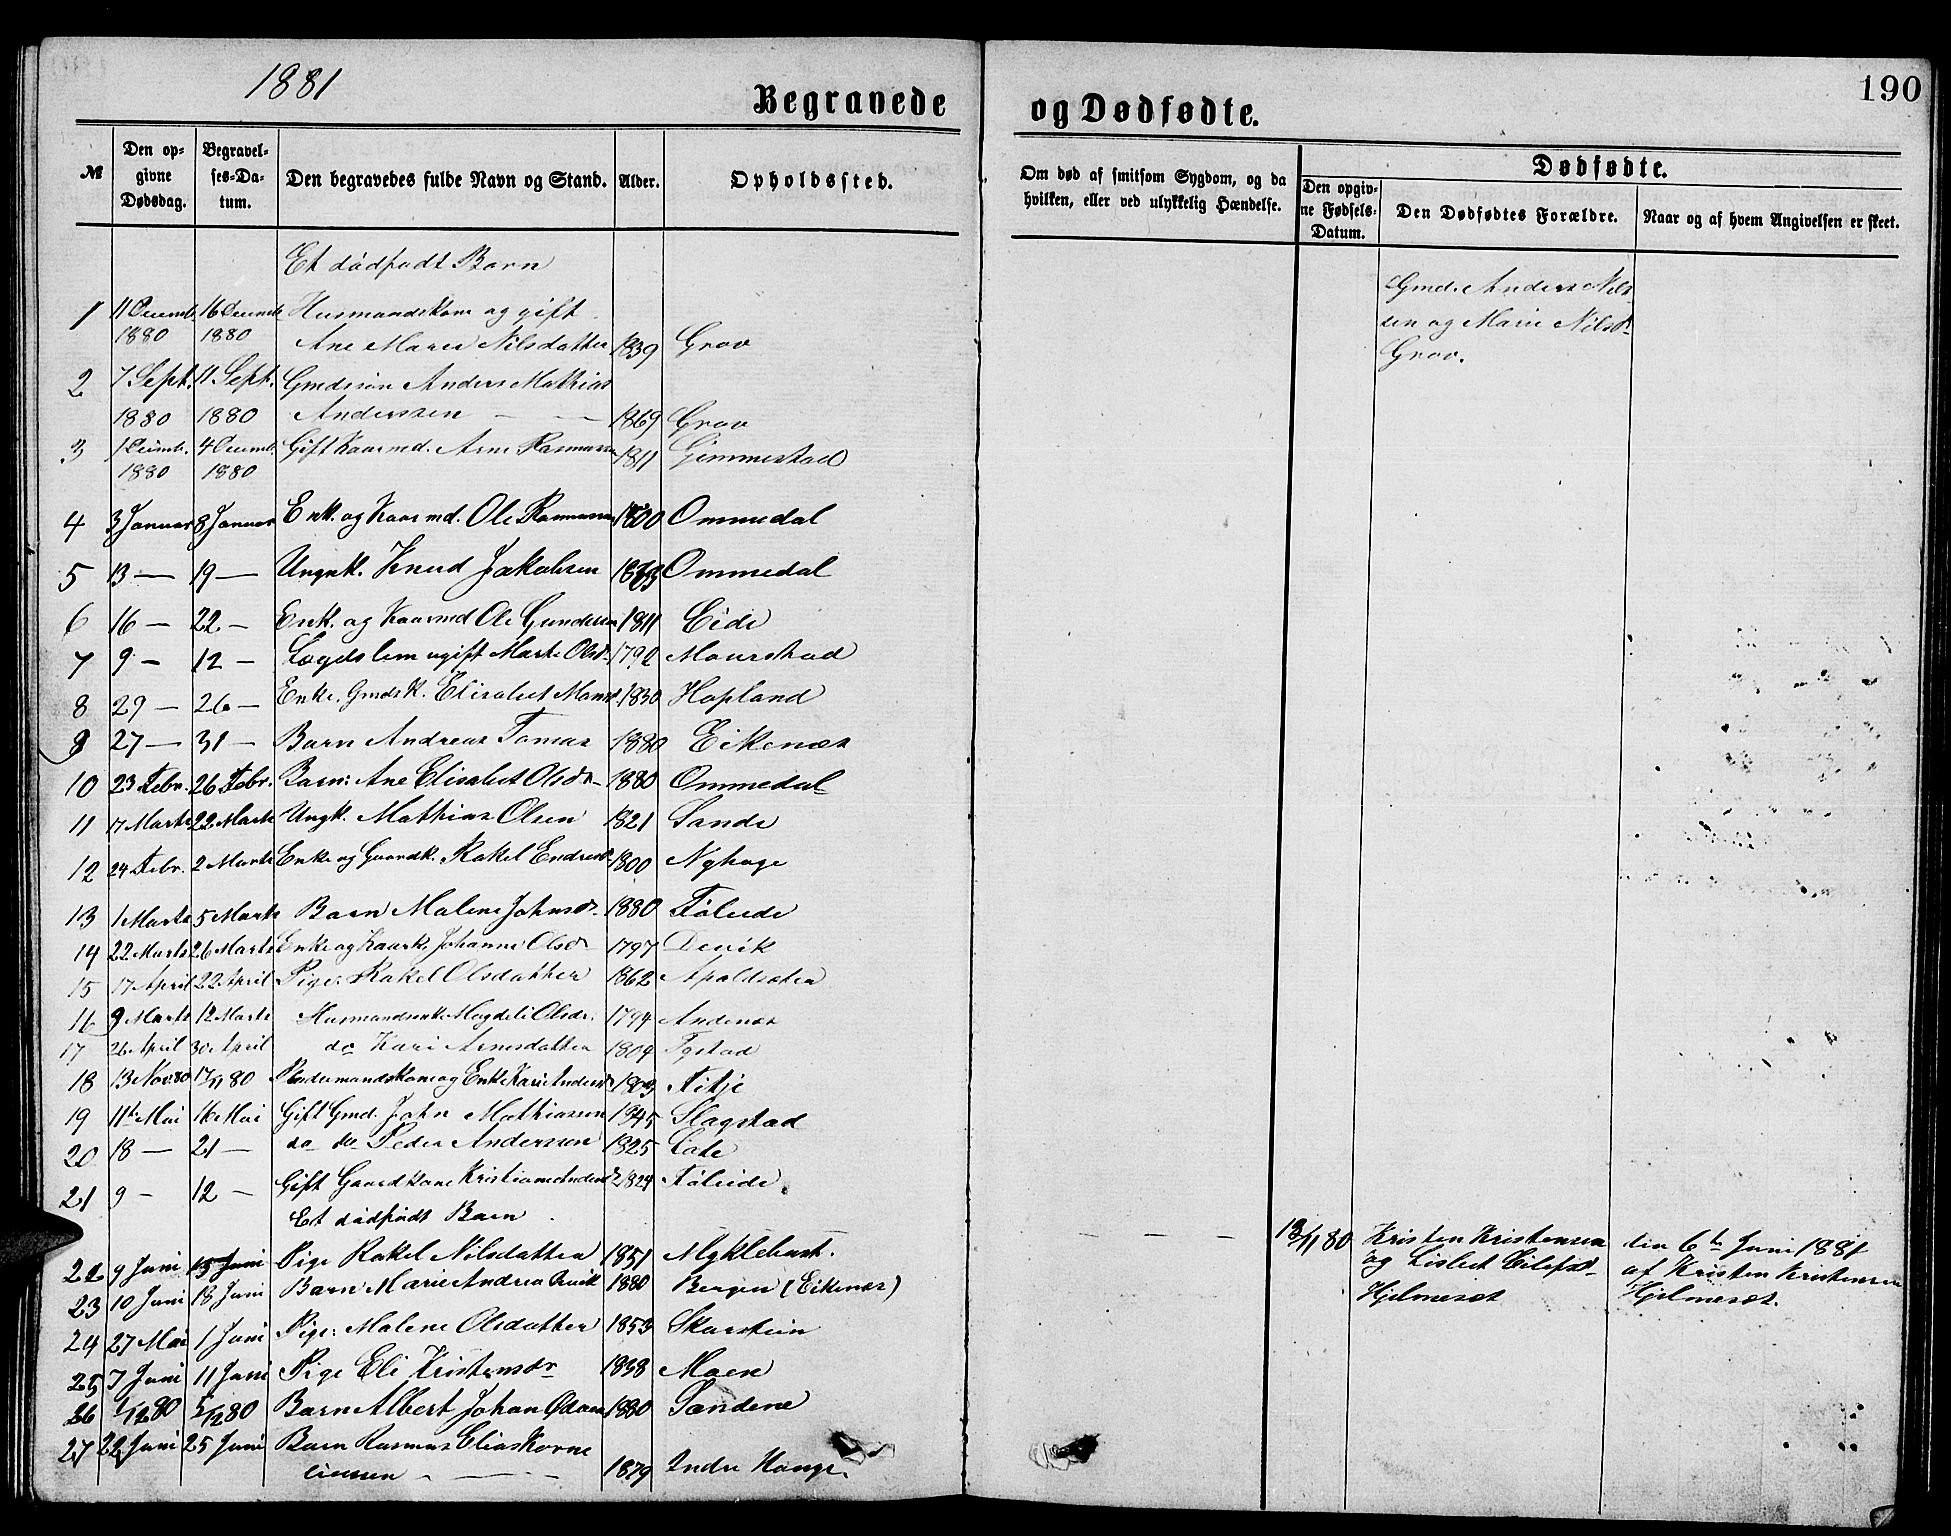 1881
Begravede
og Dødfødte.
190
№
Den opgivne Dødsdag.
Begravelses-Datum.
Den begravedes fulde Navn og Stand.
Alder.
Opholdssted.
Om død af smitsom Sygdom, og da hvilken, eller ved ulykkelig Hændelse.
Dødfødte.
Den opgivne Fødsels-Datum.
Den Dødfødtes Forældre.
Naar og af hvem Angivelsen er skeet.
Et dødfødt Barn
Gmd. Anders Nils
sen og Marie Nilsd.
Grov.
1 11 Decemb. 1880 16 Decemb. 1880 Husmandskone og gift
Ane Marie Nilsdatter 1839 Grov
2 7 Sept. 1880 11 Sept. 1880 Gmdsøn Anders Mathias
Anderssen — — 1869 Grov
3 1 Decemb. 1880 4 Decemb. 1880 Gift Kaarmd. Arne Rasmussen 1811 Gimmestad
4 3 Januar 8 Januar Enk. og Kaarmd. Ole Rasmussen 1800 Ommedal
5 13 — 19 — Ungk. Knud Jakobsen Ommedal
6 16 — 22 — Enk. og Kaarmd Ole Gundersen 1811 Eide
7 9 — 12 — Lægdslem ugift Marte Olsd. 1792 Maurstad
8 29 — 26 — Enke. Gmdsk. Elisabet Monsd. 1830 Hopland
9 27 — 31 — Barn Andreas Tomas 1880 Eikenæs
10 23 Febr. 26 Febr. Barn: Ane Elisabet Olsdr 1880 Ommedal
11 17 Marts 22 Marts Ungk. Mathias Olsen 1821 Sande
12 24 Febr. 2 Marts Enke og Gaardk. Rakel Endresd. 1800 Nyhage
13 1 Marts 5 Marts Barn Malene Johnsdr. 1880 Føleide
14 22 Marts 26 Marts Enke og Kaark. Johanne Olsdr 1797 Devik
15 17 April 22 April Pige: Rakel Olsdatter 1862 Apaldsæter
16 9 Marts 12 Marts Husmandsenke Magdeli Olsdr. 1794 Andenæs
17 26 April 30 April do Kari Arnesdatter 1809 Tystad
18 13 Nov. 80 17/11 80 Kari Andersdr Fitje
19 11te Mai 16 Mai Gift Gmd. John Mathiassen 1845 Slagstad
20 18 — 21 — do do Peder Anderssen 1825 Lote
21 9 — 12 — Gift Gaardkone Kristiane Andersd 1824 Føleide
Et dødfødt Barn
— — — 13/11 80 Kristen Kristensen
og Lisbet Eilefsd.
Hjelmeset
den 6te Juni 1881
af Kristen Kristensen
Hjelmeset.
22 9 Juni 15 Juni Pige Rakel Nilsdatter 1851 Myklebust.
23 10 Juni 18 Juni Barn Marie Andrea 1880 Bergen (Eikenæs)
24 27 Mai 1 Juni Pige: Malene Olsdatter 1853 Skarstein
25 7 Juni 11 Juni Pige Eli Kristensdr 1838 Moen
26 1/12 80 5/12 80 Barn Albert Johan 1880 Sandene
27 22 Juni 25 Juni Barn Rasmus Elias Korne
liussen — — 1879 Indre Hauge.